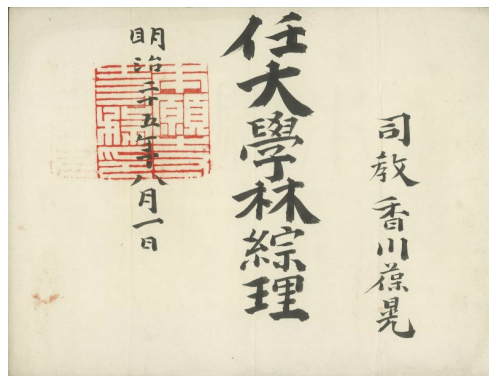 司教 香川葆晃
任大學林綜理
明治二十五年八月一日
本願寺